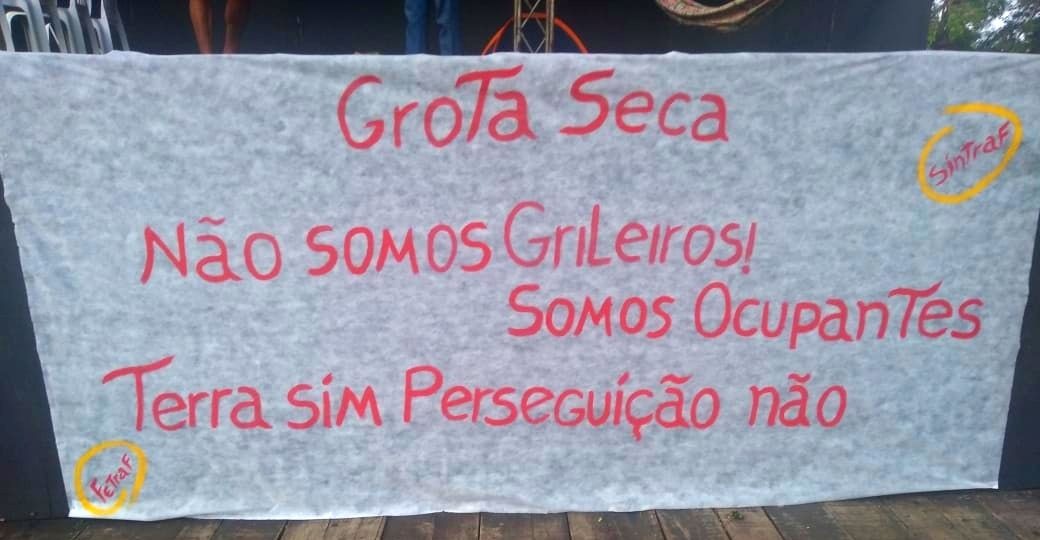 GroTa Seca
SinTraF
Não somos GriLeiros!
Somos OcupanTes
Terra sim Perseguição não
FeTraF